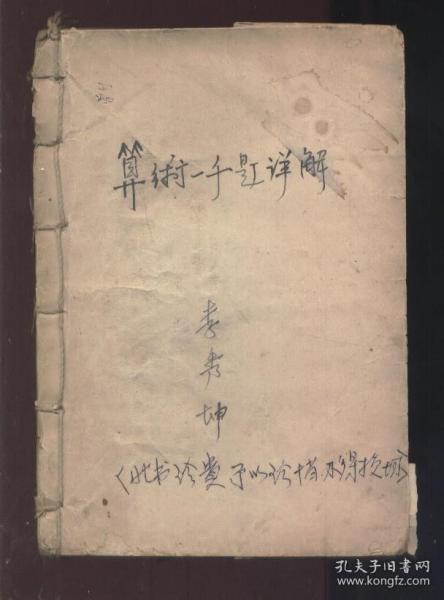 算術一千题详解
李秀坤
(此书珍贵予以珍惜不得损坏)
孔夫子旧书网
www.kongfz.com